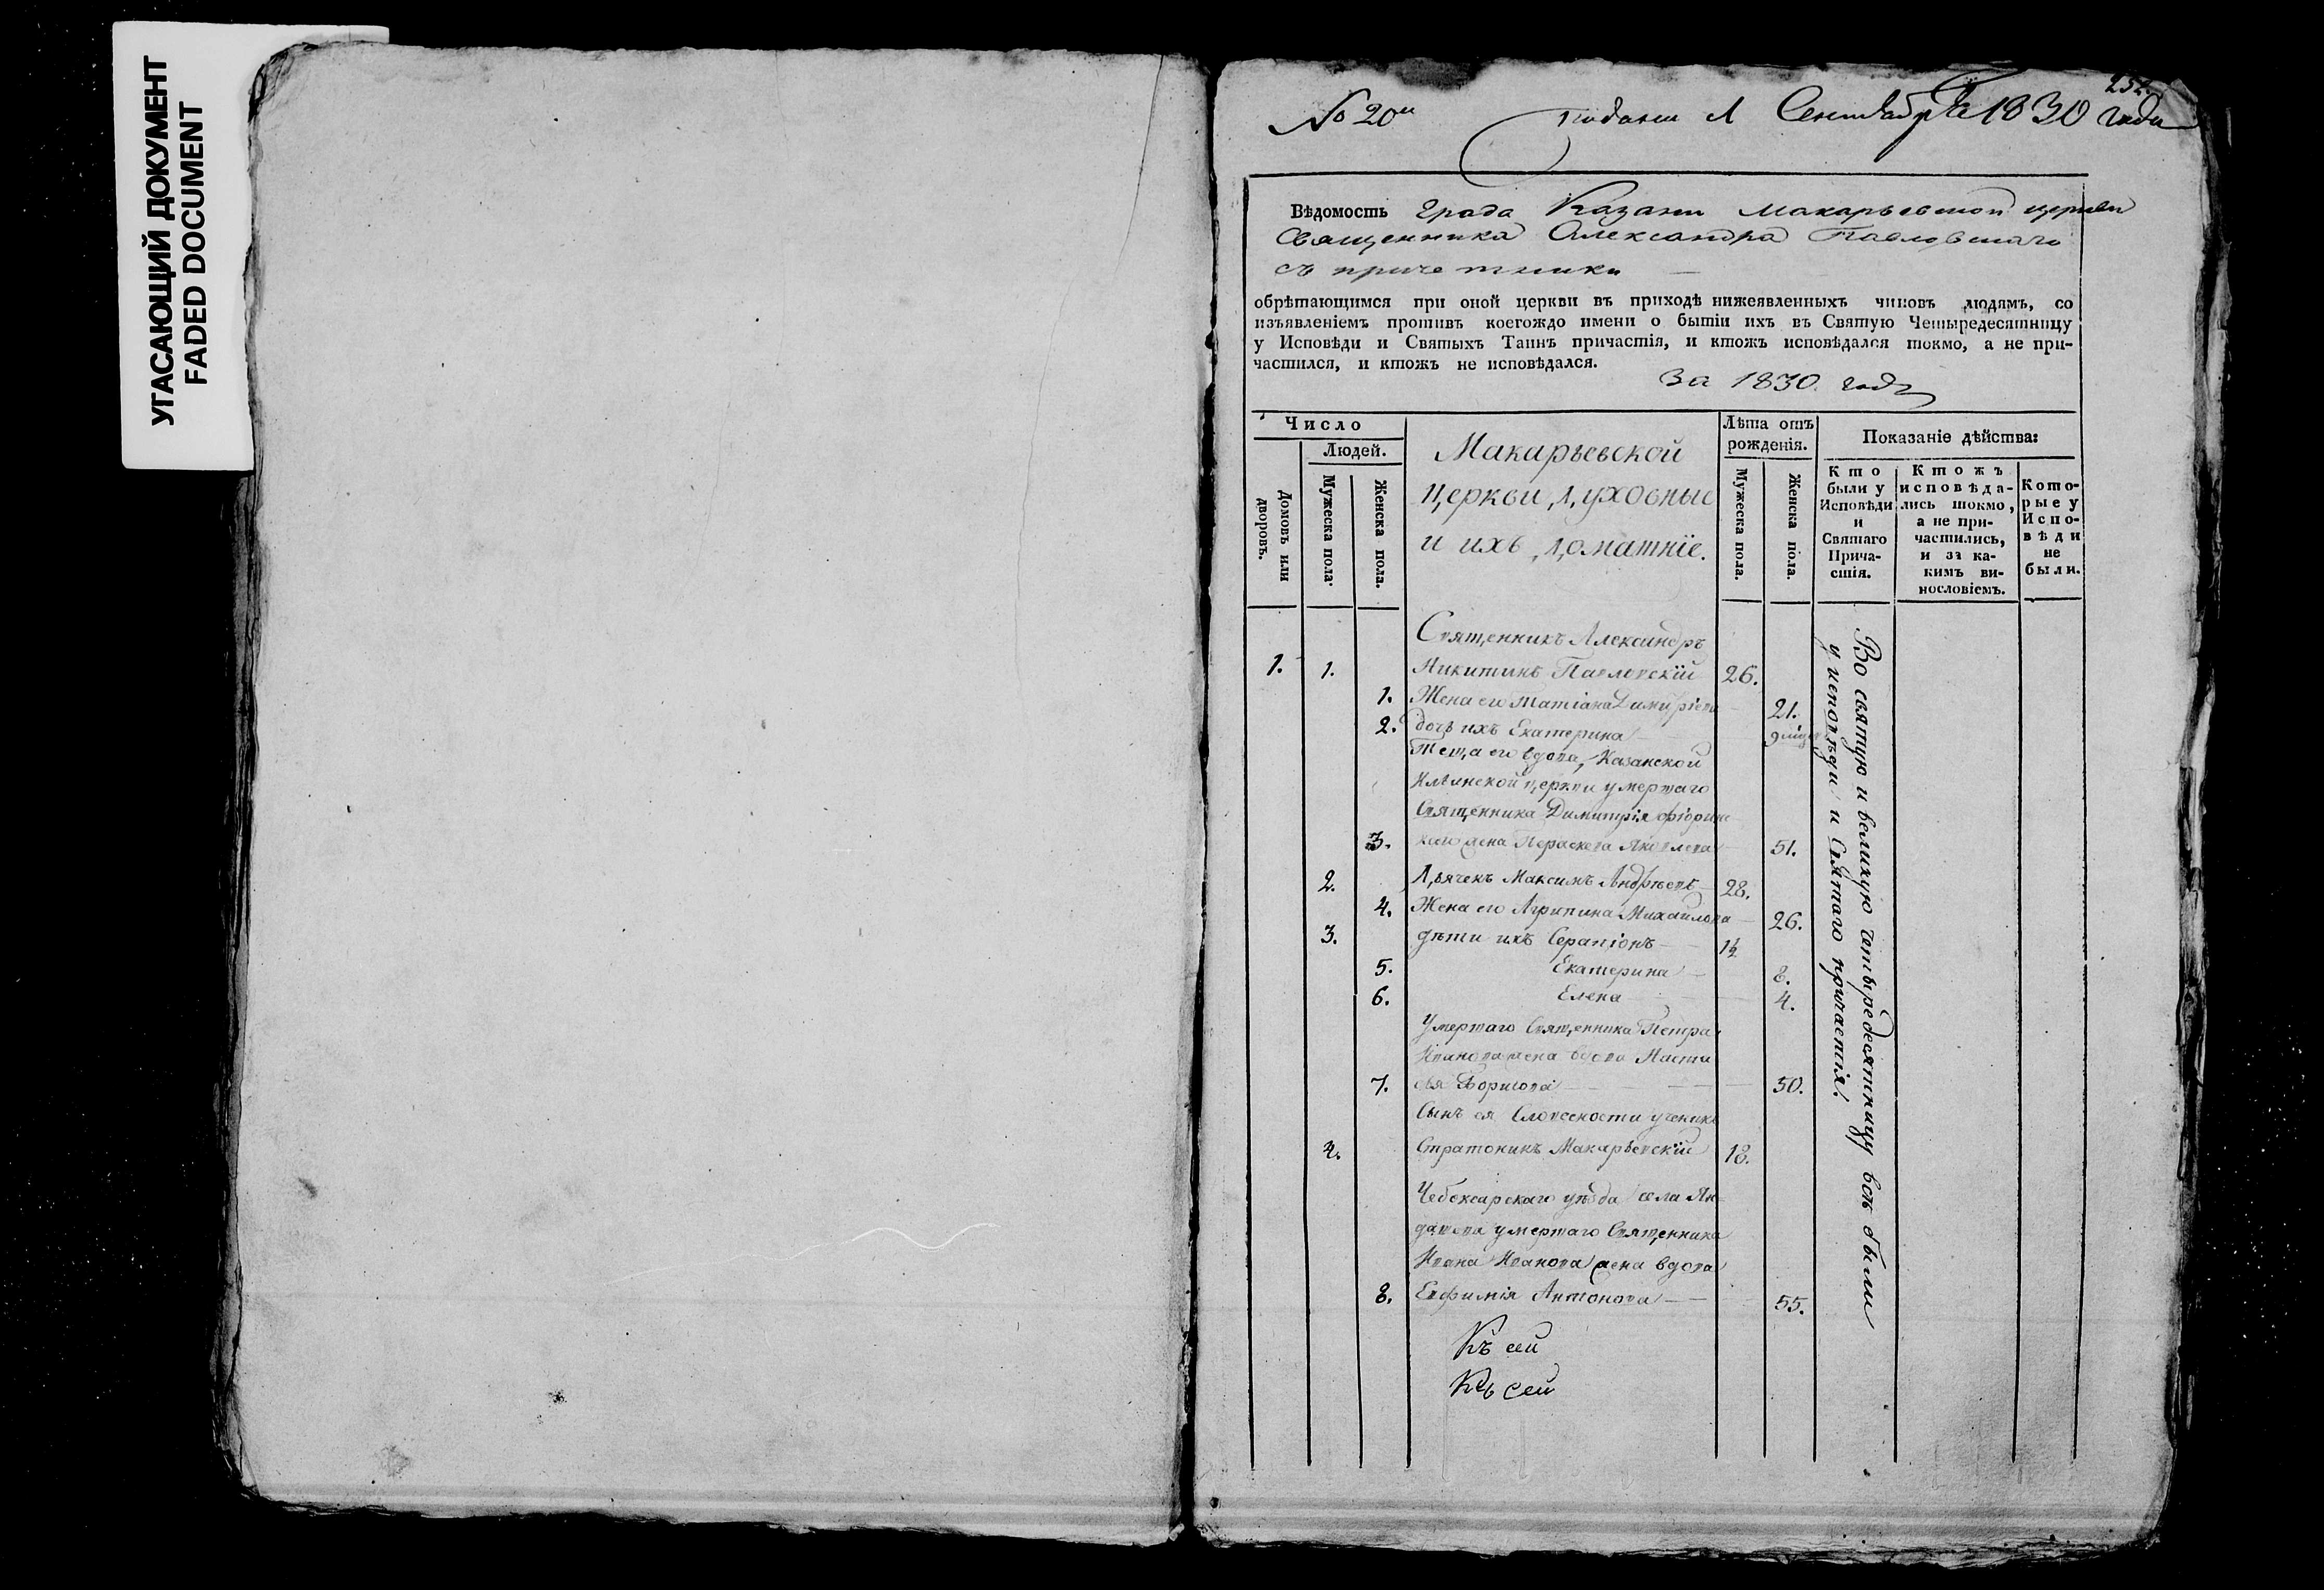 УГАСАЮЩИЙ ДОКУМЕНТ
FADED DOCUMENT
252.
№ 20й
Подана Сентября 1830 года
Вѣдомость града Казани Макарьевской церкви
Священника Александра Павловскаго
съ причетники
обрѣтающимся при оной церкви въ приходѣ нижеявленныхъ чиновъ людямъ, со
изъявленіемъ противъ коегождо имени о бытіи ихъ въ Святую Четыредесятницу
у Исповѣди и Святыхъ Таинъ причастія, и ктожъ исповѣдался токмо, а не при-
частился, и ктожъ не исповѣдался.
За 1830. годъ
Число
Людей.
Домовъ или дворовъ.
Мужеска пола.
Женска пола.
Макарьевской
Церкви Духовные
и ихъ домашніе.
Лѣта отъ
рожденія.
Мужеска пола.
Женска пола.
Показаніе дѣйства:
Кто
были у
Исповѣди
и
Святаго
Прича-
стія.
Ктожъ
исповѣда-
лись токмо,
а не при-
частились,
и за ка-
кимъ ви-
нословіемъ.
Кото-
рые у
Испо-
вѣди
не
были.
Священникъ Александръ
1. 1. Никитинъ Павловскій 26.
1. Жена его Татіана Димитріева 21.
2. дочь ихъ Екатерина 9
Теща его вдова, Казанской
церкви умершаго
Священника Димитрія
3. жена Параскева Яковлева 51.
2. Дьячекъ Максимъ Андреевъ 28.
4. Жена его Агрипина Михайлова 26.
3. дѣти ихъ Серапіонъ 1½
5. Екатерина 8.
6. Елена 4.
Умершаго Священника Петра
Иванова жена вдова Наста
7. сья Борисова 50.
Сынъ ея Словесности ученикъ
4. Стратоникъ Макарьевскій 18.
Чебоксарскаго уѣзда села Ян-
дашева умершаго Священника
Ивана Иванова жена вдова
8. Евфимія Антонова 55.
Къ сей
Къ сей
Во святую и великую четыредесятницу всѣ были
у исповѣди и Святаго причастія.